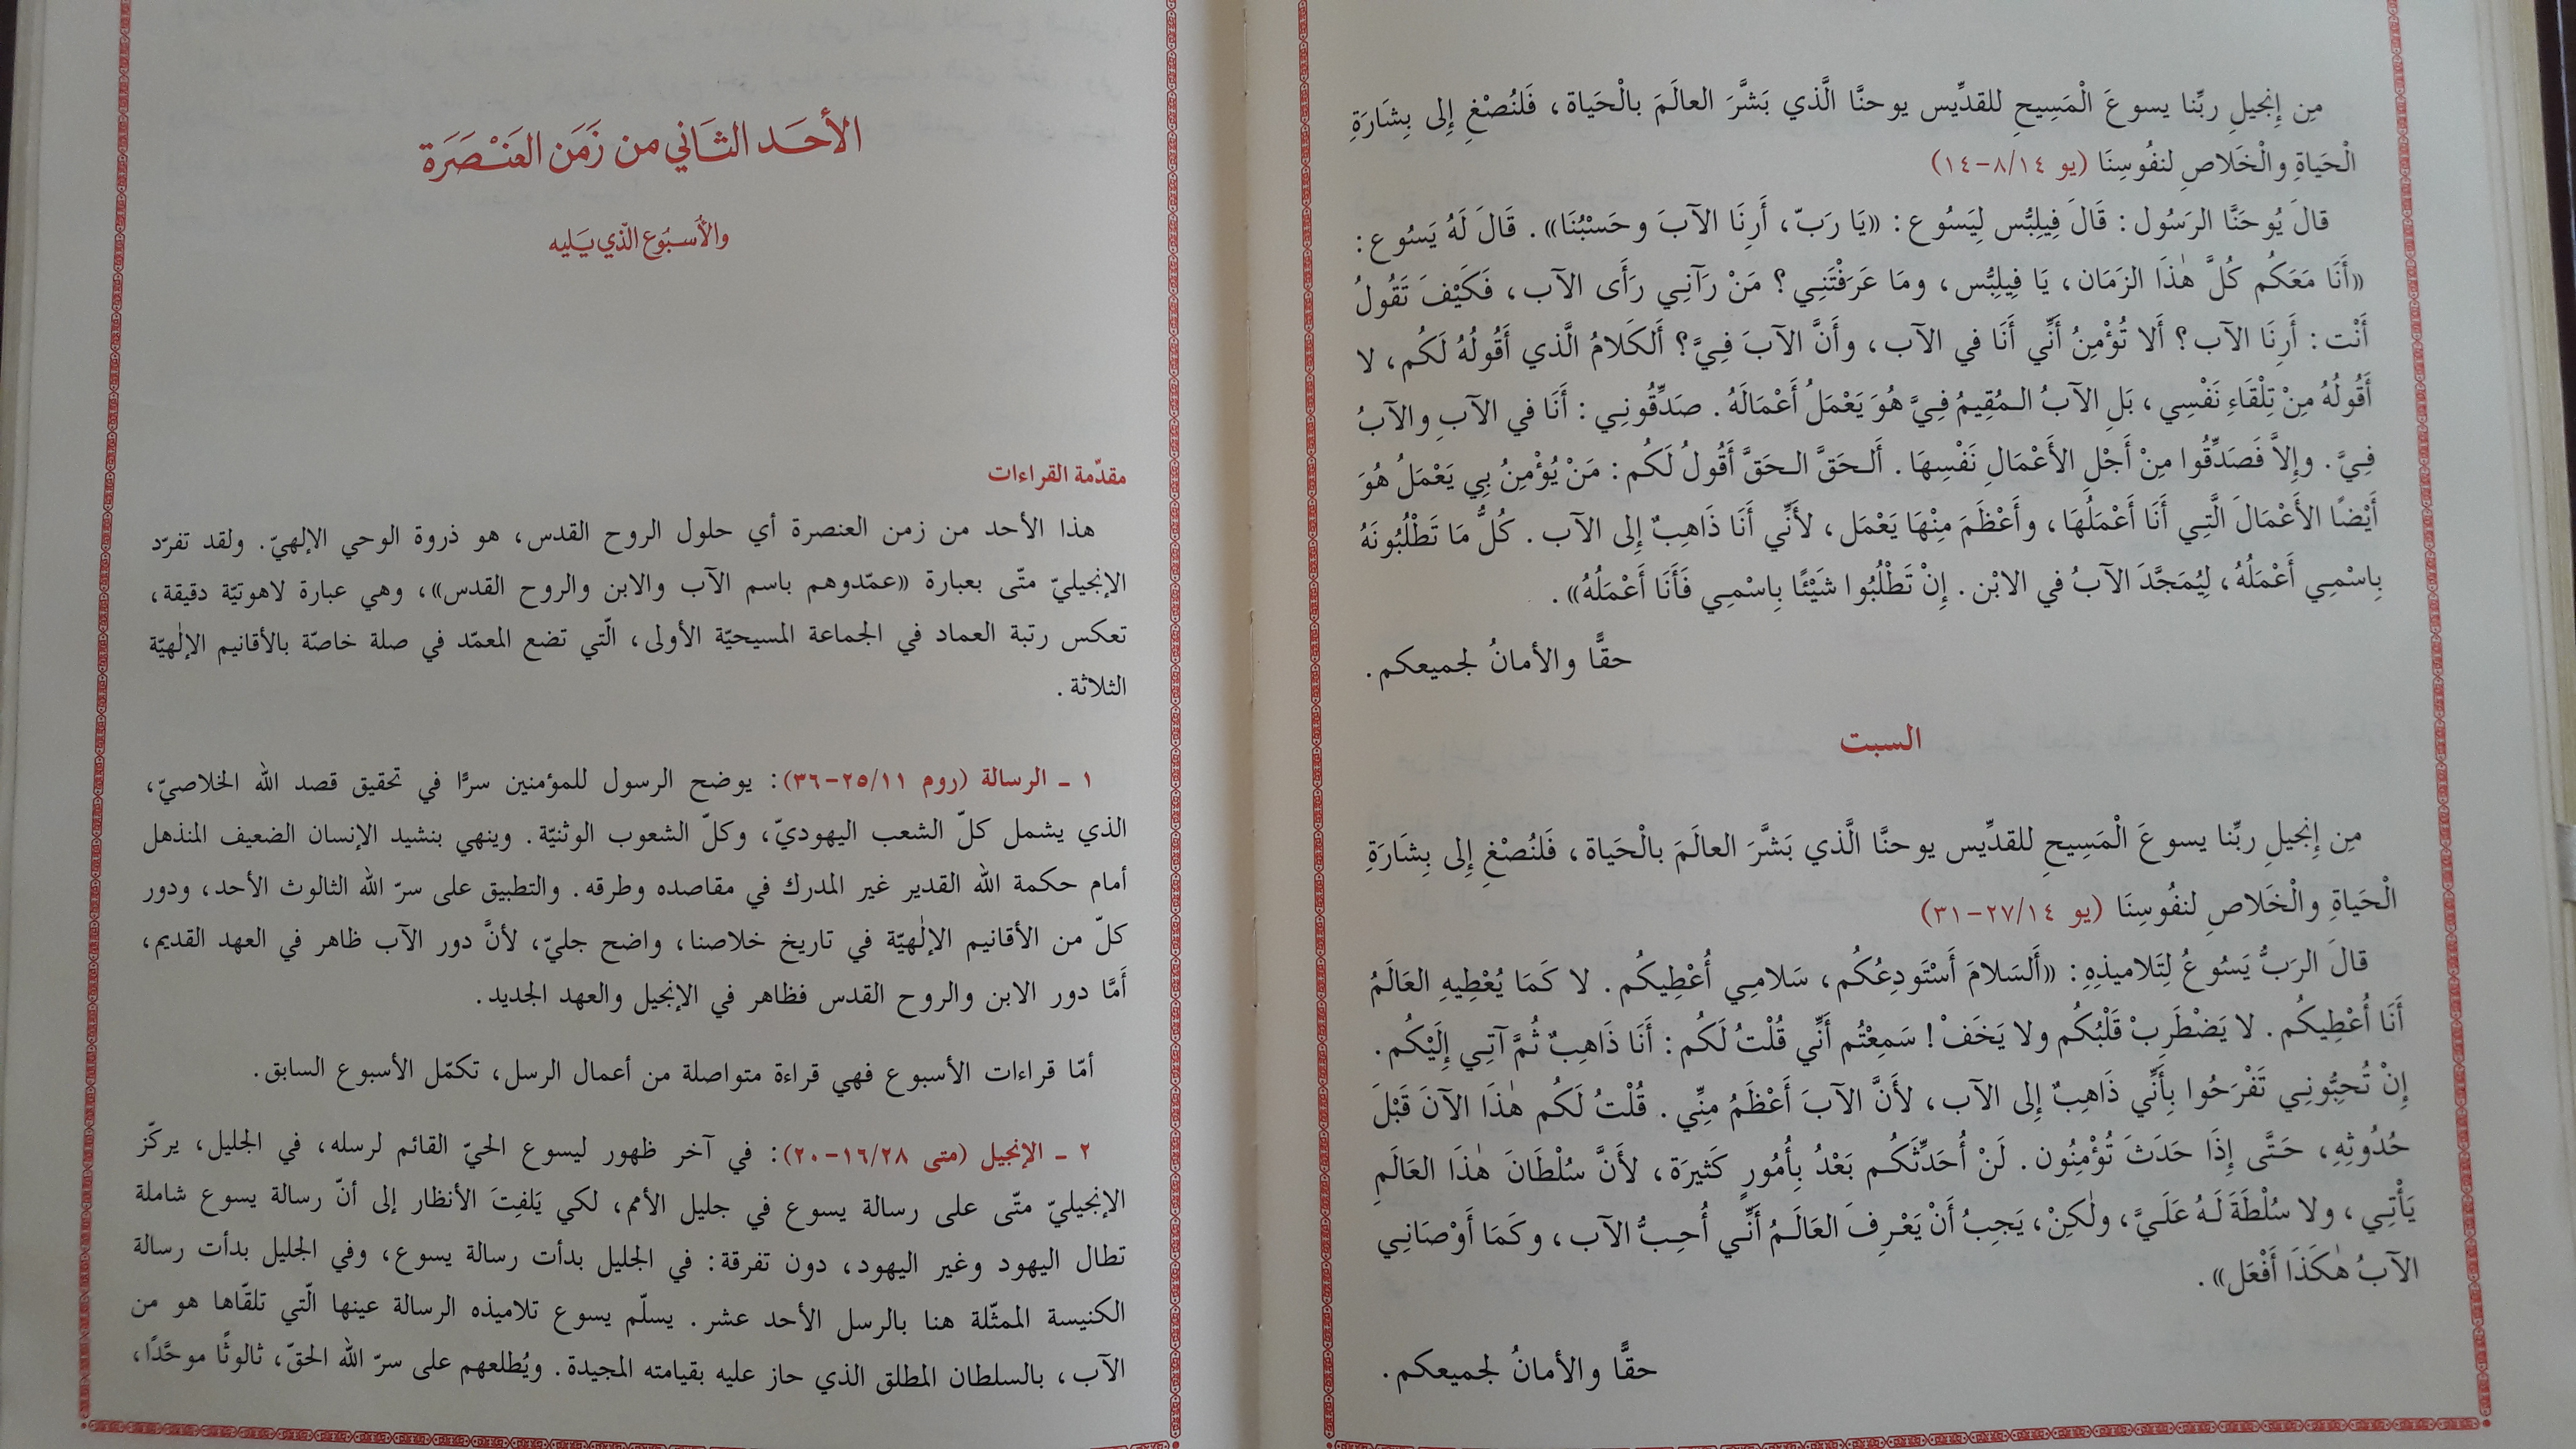 مِن إِنجيلِ ربِّنا يسوعَ الْمَسِيحِ للقدِّيس يوحنَّا الَّذي بَشَّرَ العالَمَ بالْحَياة، فَلنُصْغِ إِلى بِشَارَةِ
الْحَياةِ والْخَلاصِ لنفُوسِنَا (يو ١٤/‏٨-١٤)
قالَ يُوحَنَّا الرَسُول: قَالَ فِيلِبُّس لِيَسُوع: «يَا رَبّ، أَرِنَا الآبَ وحَسْبُنَا». قَالَ لَهُ يَسُوع:
«أَنَا مَعَكُم كُلَّ هٰذَا الزَمَان، يَا فِيلِبُّس، ومَا عَرَفْتَنِي؟ مَنْ رَآنِي رَأَى الآب، فَكَيْفَ تَقُولُ
أَنْت: أَرِنَا الآب؟ أَلا تُؤْمِنُ أَنِّي أَنَا في الآب، وأَنَّ الآبَ فِيَّ؟ أَلكَلامُ الَّذي أَقُولُهُ لَكُم، لا
أَقُولُهُ مِنْ تِلْقَاءِ نَفْسِي، بَلِ الآبُ المُقِيمُ فِيَّ هُوَ يَعْمَلُ أَعْمَالَهُ. صَدِّقُونِي: أَنَا في الآبِ والآبُ
فِيَّ. وإِلاَّ فَصَدِّقُوا مِنْ أَجْلِ الأَعْمَالِ نَفْسِهَا. أَلحَقَّ الحَقَّ أَقُولُ لَكُم: مَنْ يُؤْمِنُ بِي يَعْمَلُ هُوَ
أَيْضًا الأَعْمَالَ الَّتِي أَنَا أَعْمَلُهَا، وأَعْظَمَ مِنْهَا يَعْمَل، لأَنِّي أَنَا ذَاهِبٌ إِلى الآب. كُلُّ مَا تَطْلُبُونَهُ
بِاسْمِي أَعْمَلُهُ، لِيُمَجَّدَ الآبُ في الابْن. إِنْ تَطْلُبُوا شَيْئًا بِاسْمِي فَأَنَا أَعْمَلُهُ».
حقًّا والأمانُ لجميعكم.
السبت
مِن إِنجيلِ ربِّنا يسوعَ الْمَسِيحِ للقدِّيس يوحنَّا الَّذي بَشَّرَ العالَمَ بالْحَياة، فَلنُصْغِ إِلى بِشَارَةِ
الْحَياةِ والْخَلاصِ لنفُوسِنَا (يو ١٤/‏٢٧-٣١)
قالَ الرَبُّ يَسُوعُ لِتَلاميذِهِ: «أَلسَلامَ أَسْتَودِعُكُم، سَلامِي أُعْطِيكُم. لا كَمَا يُعْطِيهِ العَالَمُ
أَنَا أُعْطِيكُم. لا يَضْطَرِبْ قَلْبُكُم ولا يَخَفْ! سَمِعْتُم أَنِّي قُلْتُ لَكُم: أَنَا ذَاهِبٌ ثُمَّ آتِي إِلَيْكُم.
إِنْ تُحِبُّونِي تَفْرَحُوا بِأَنِّي ذَاهِبٌ إِلى الآب، لأَنَّ الآبَ أَعْظَمُ مِنِّي. قُلْتُ لَكُم هٰذَا الآنَ قَبْلَ
حُدُوثِهِ، حَتَّى إِذَا حَدَثَ تُؤْمِنُون. لَنْ أُحَدِّثَكُم بَعْدُ بِأُمُورٍ كَثيرَة، لأَنَّ سُلْطَانَ هٰذَا العَالَمِ
يَأْتِي، ولا سُلْطَةَ لَهُ عَلَيَّ، ولٰكِنْ، يَجِبُ أَنْ يَعْرِفَ العَالَمُ أَنِّي أُحِبُّ الآب، وكَمَا أَوْصَانِي
الآبُ هٰكَذَا أَفْعَل».
حقًّا والأمانُ لجميعكم.
الأحَد الثَاني من زَمَن العَنْصَرَة
والأُسبُوع الّذي يَليه
مقدّمة القراءات
هذا الأحد من زمن العنصرة أي حلول الروح القدس، هو ذروة الوحي الإلهيّ. ولقد تفرّد
الإنجيليّ متّى بعبارة «عمّدوهم باسم الآب والابن والروح القدس»، وهي عبارة لاهوتيّة دقيقة،
تعكس رتبة العماد في الجماعة المسيحيّة الأولى، الّتي تضع المعمّد في صلة خاصّة بالأقانيم الإلٰهيّة
الثلاثة.
١ ـ الرسالة (روم ١١/‏٢٥-٣٦): يوضح الرسول للمؤمنين سرًّا في تحقيق قصد الله الخلاصيّ،
الذي يشمل كلّ الشعب اليهوديّ، وكلّ الشعوب الوثنيّة. وينهي بنشيد الإنسان الضعيف المنذهل
أمام حكمة الله القدير غير المدرك في مقاصده وطرقه. والتطبيق على سرّ الله الثالوث الأحد، ودور
كلّ من الأقانيم الإلٰهيّة في تاريخ خلاصنا، واضح جليّ، لأنَّ دور الآب ظاهر في العهد القديم،
أَمَّا دور الابن والروح القدس فظاهر في الإنجيل والعهد الجديد.
أمّا قراءات الأسبوع فهي قراءة متواصلة من أعمال الرسل، تكمّل الأسبوع السابق.
٢ ـ الإنجيل (متى ٢٨/‏١٦-٢٠): في آخر ظهور ليسوع الحيّ القائم لرسله، في الجليل، يركّز
الإنجيليّ متّى على رسالة يسوع في جليل الأمم، لكي يَلفِتَ الأنظار إلى أنّ رسالة يسوع شاملة
تطال اليهود وغير اليهود، دون تفرقة: في الجليل بدأت رسالة يسوع، وفي الجليل بدأت رسالة
الكنيسة الممثّلة هنا بالرسل الأحد عشر. يسلّم يسوع تلاميذه الرسالة عينها الّتي تلقّاها هو من
الآب، بالسلطان المطلق الذي حاز عليه بقيامته المجيدة. ويُطلعهم على سرّ الله الحقّ، ثالوثًا موحَّدًا،